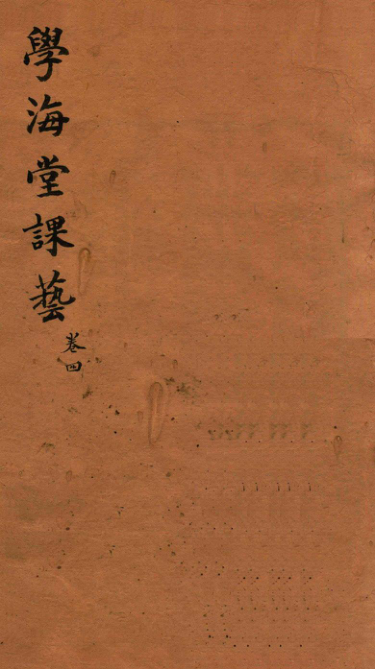 學海堂課藝
卷四